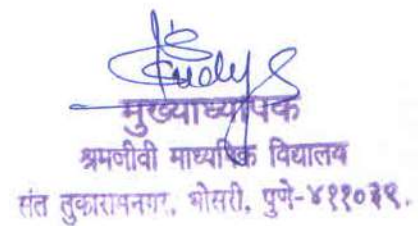 मुख्याध्यापक
श्रमजीवी माध्यमिक विद्यालय
संत तुकारामनगर, भोसरी, पुणे-४११०३९.